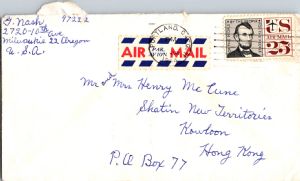 D. Nash 97222
2720-10th Ave
Milwaukie 22 Oregon
U.S.A.
AIR MAIL
PORTLAND, O
MAR
US
AIR MAIL
25¢
Mr & Mrs Henry Mc Cune
Shatin New Territories
Kowloon
Hong Kong
P.O Box 77